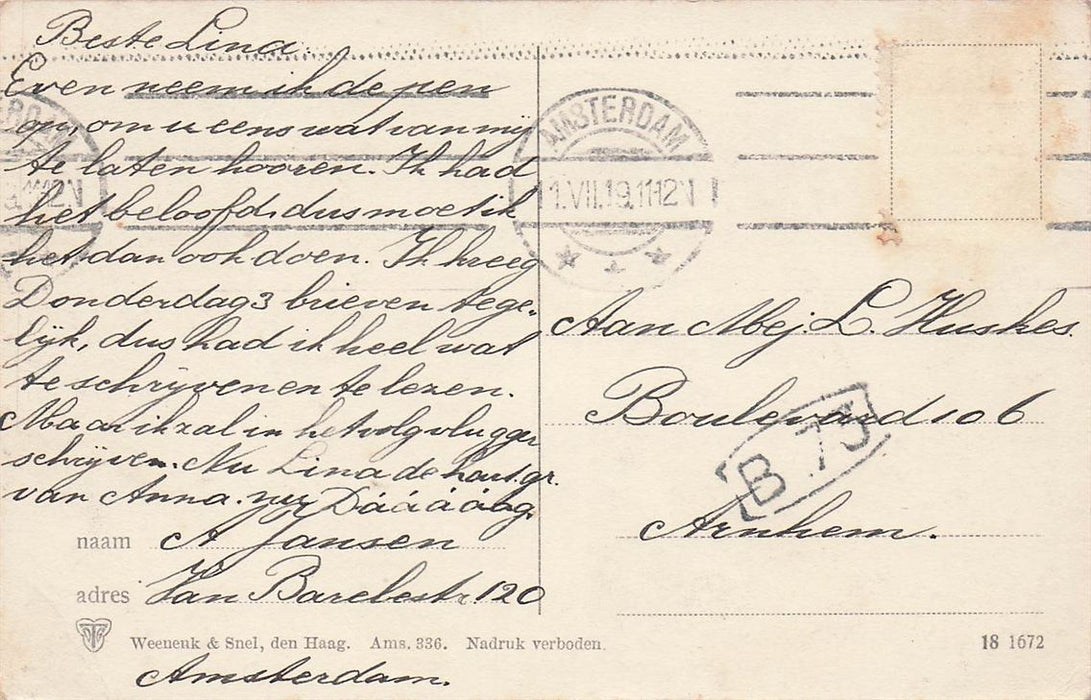 Beste Lina.
Even neem ik de pen
op, om u eens wat van mij
te laten hooren. Ik had
het beloofd, dus moet ik
het dan ook doen. Ik kreeg
Donderdag 3 brieven tege-
lijk, dus had ik heel wat
te schrijven en te lezen.
Maar ik zal in het volg vlugger
schrijven. Nu Lina de hart. gr.
van Anna. Dáááááág
naam A Jansen
adres Van Barelestr. 120
Amsterdam.
Weenenk & Snel, den Haag. Ams. 336. Nadruk verboden.
18 1672
AMSTERDAM
1.VII.19.11-12V
RDAM
9.11-12V
Aan Mej. L. Huskes.
Boulevard 106
Arnhem.
B 73